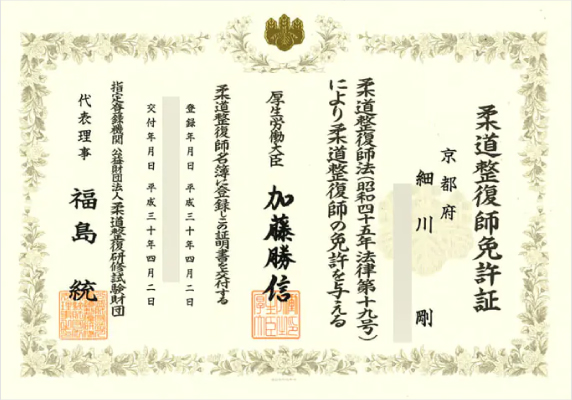 柔道整復師免許証
京都府
細川 剛
柔道整復師法(昭和四十五年法律第十九号)
により柔道整復師の免許を与える
厚生労働大臣 加藤勝信
柔道整復師名簿に登録しこの証明書を交付する
登録年月日 平成三十年四月二日
交付年月日 平成三十年四月二日
指定登録機関 公益財団法人柔道整復研修試験財団
代表理事 福島 統